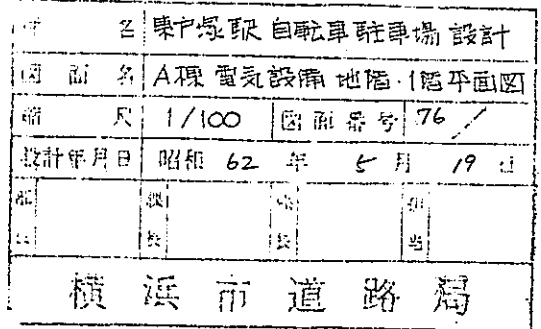 件 名 東戸塚駅 自転車駐車場 設計
図面名 A棟 電気設備 地階・1階平面図
縮尺 1/100 図面番号 76/
設計年月日 昭和 62 年 5 月 19 日
部長 課長 係長 担当
横浜市道路局